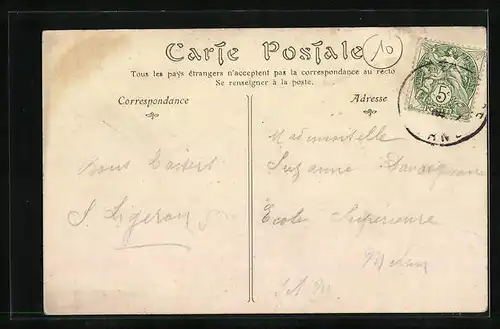 Carte Postale
10
Tous les pays étrangers n'acceptent pas la correspondance au recto
Se renseigner à la poste.
Correspondance
Adresse
5
Mademoiselle
Suzanne
Bons Baisers
S. Ligeron
École Supérieure
Melun
S et M